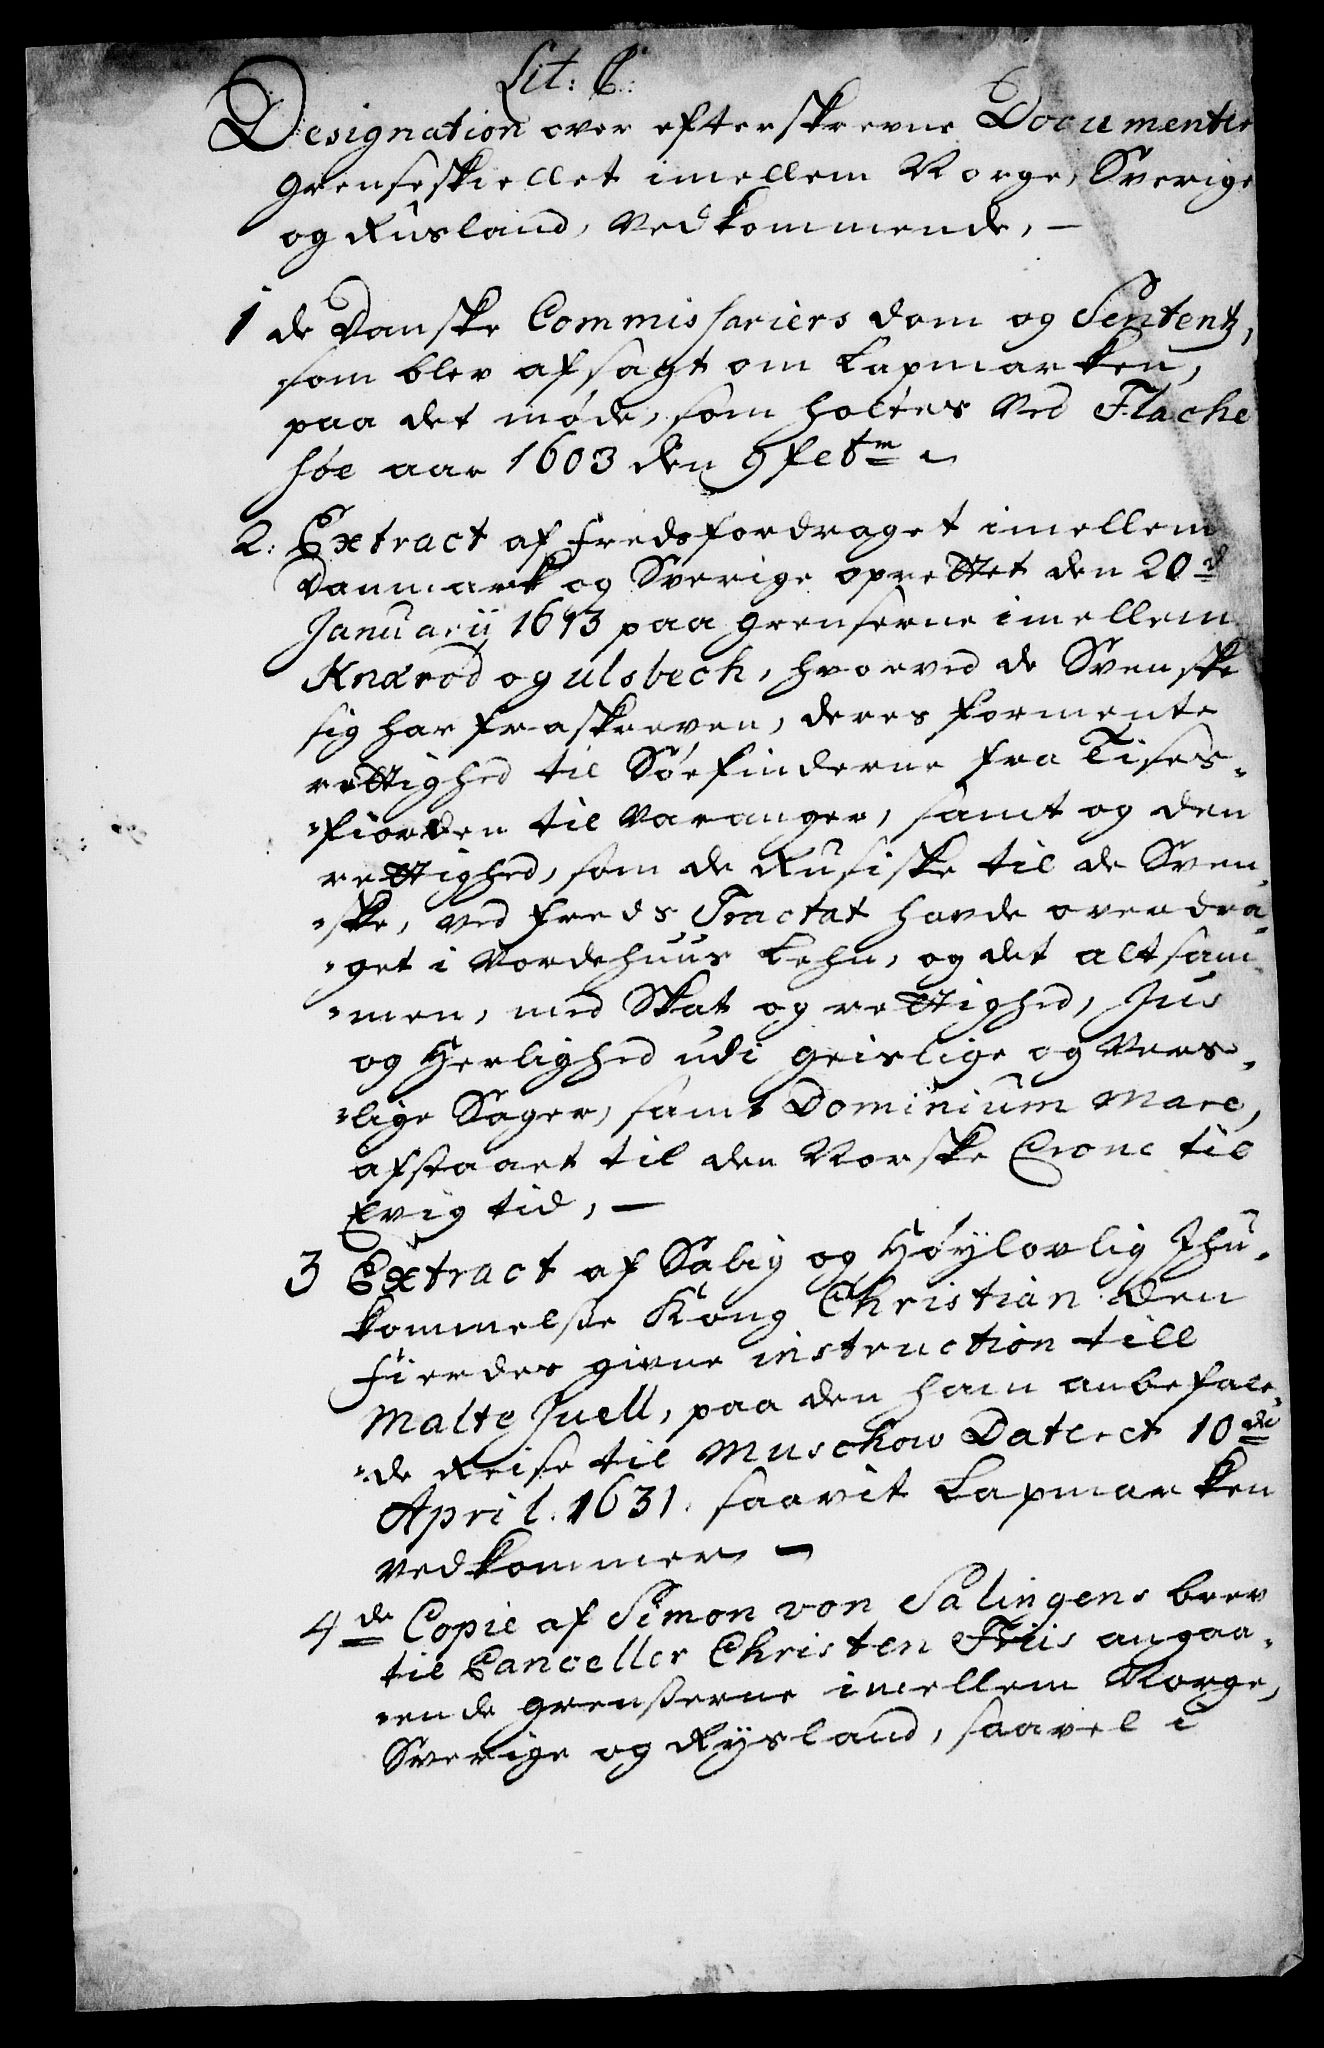 Lit: C:
Designation over efterskrevne Documenter
Grenseskiellet imellem Norge, Sverige
og Rusland, vedkommende, —
1 de Danske Commissariers dom og Sententz,
som blev afsagt om Lapmarken,
paa det møde, som holtes ved Flache
høe aar 1603 den 9 febr
2. Extract af Fredsfordraget imellem
Danmark og Sverige oprettet den 20d
Januarij 1613 paa grenserne imellem
Knærod og Ulsbech, hvorved de Svenske
sig har fraskreven, deres formente
rettighed til Søefinderne fra Tises-
-fiorden til Varanger, samt og den
rettighed, som de Rusiske til de Sven-
-ske, ved freds Tractat havde overdra-
-get i Vordehuus Lehn, og det altsam-
-men, med Skat og rettighed, Jus
og Herlighed udi geistlige og vers-
-lige Sager, samt Dominium Mare,
afstaaet til den Norske Crone til
Evig tid, —
3 Extract af Salig og Høylovlig Ihu-
kommelse Kong Christian den
Fierdes givne instruction till
Malte Juell, paa den ham anbefale-
-de Reise til Muschow Dateret 10de
April. 1631. saavit Lapmarken
vedkommer —
4de Copie af Simon von Salingens brev
til Canceller Christen Friis angaa-
-ende grentserne imellem Norge,
Sverige og Rysland, saavel i